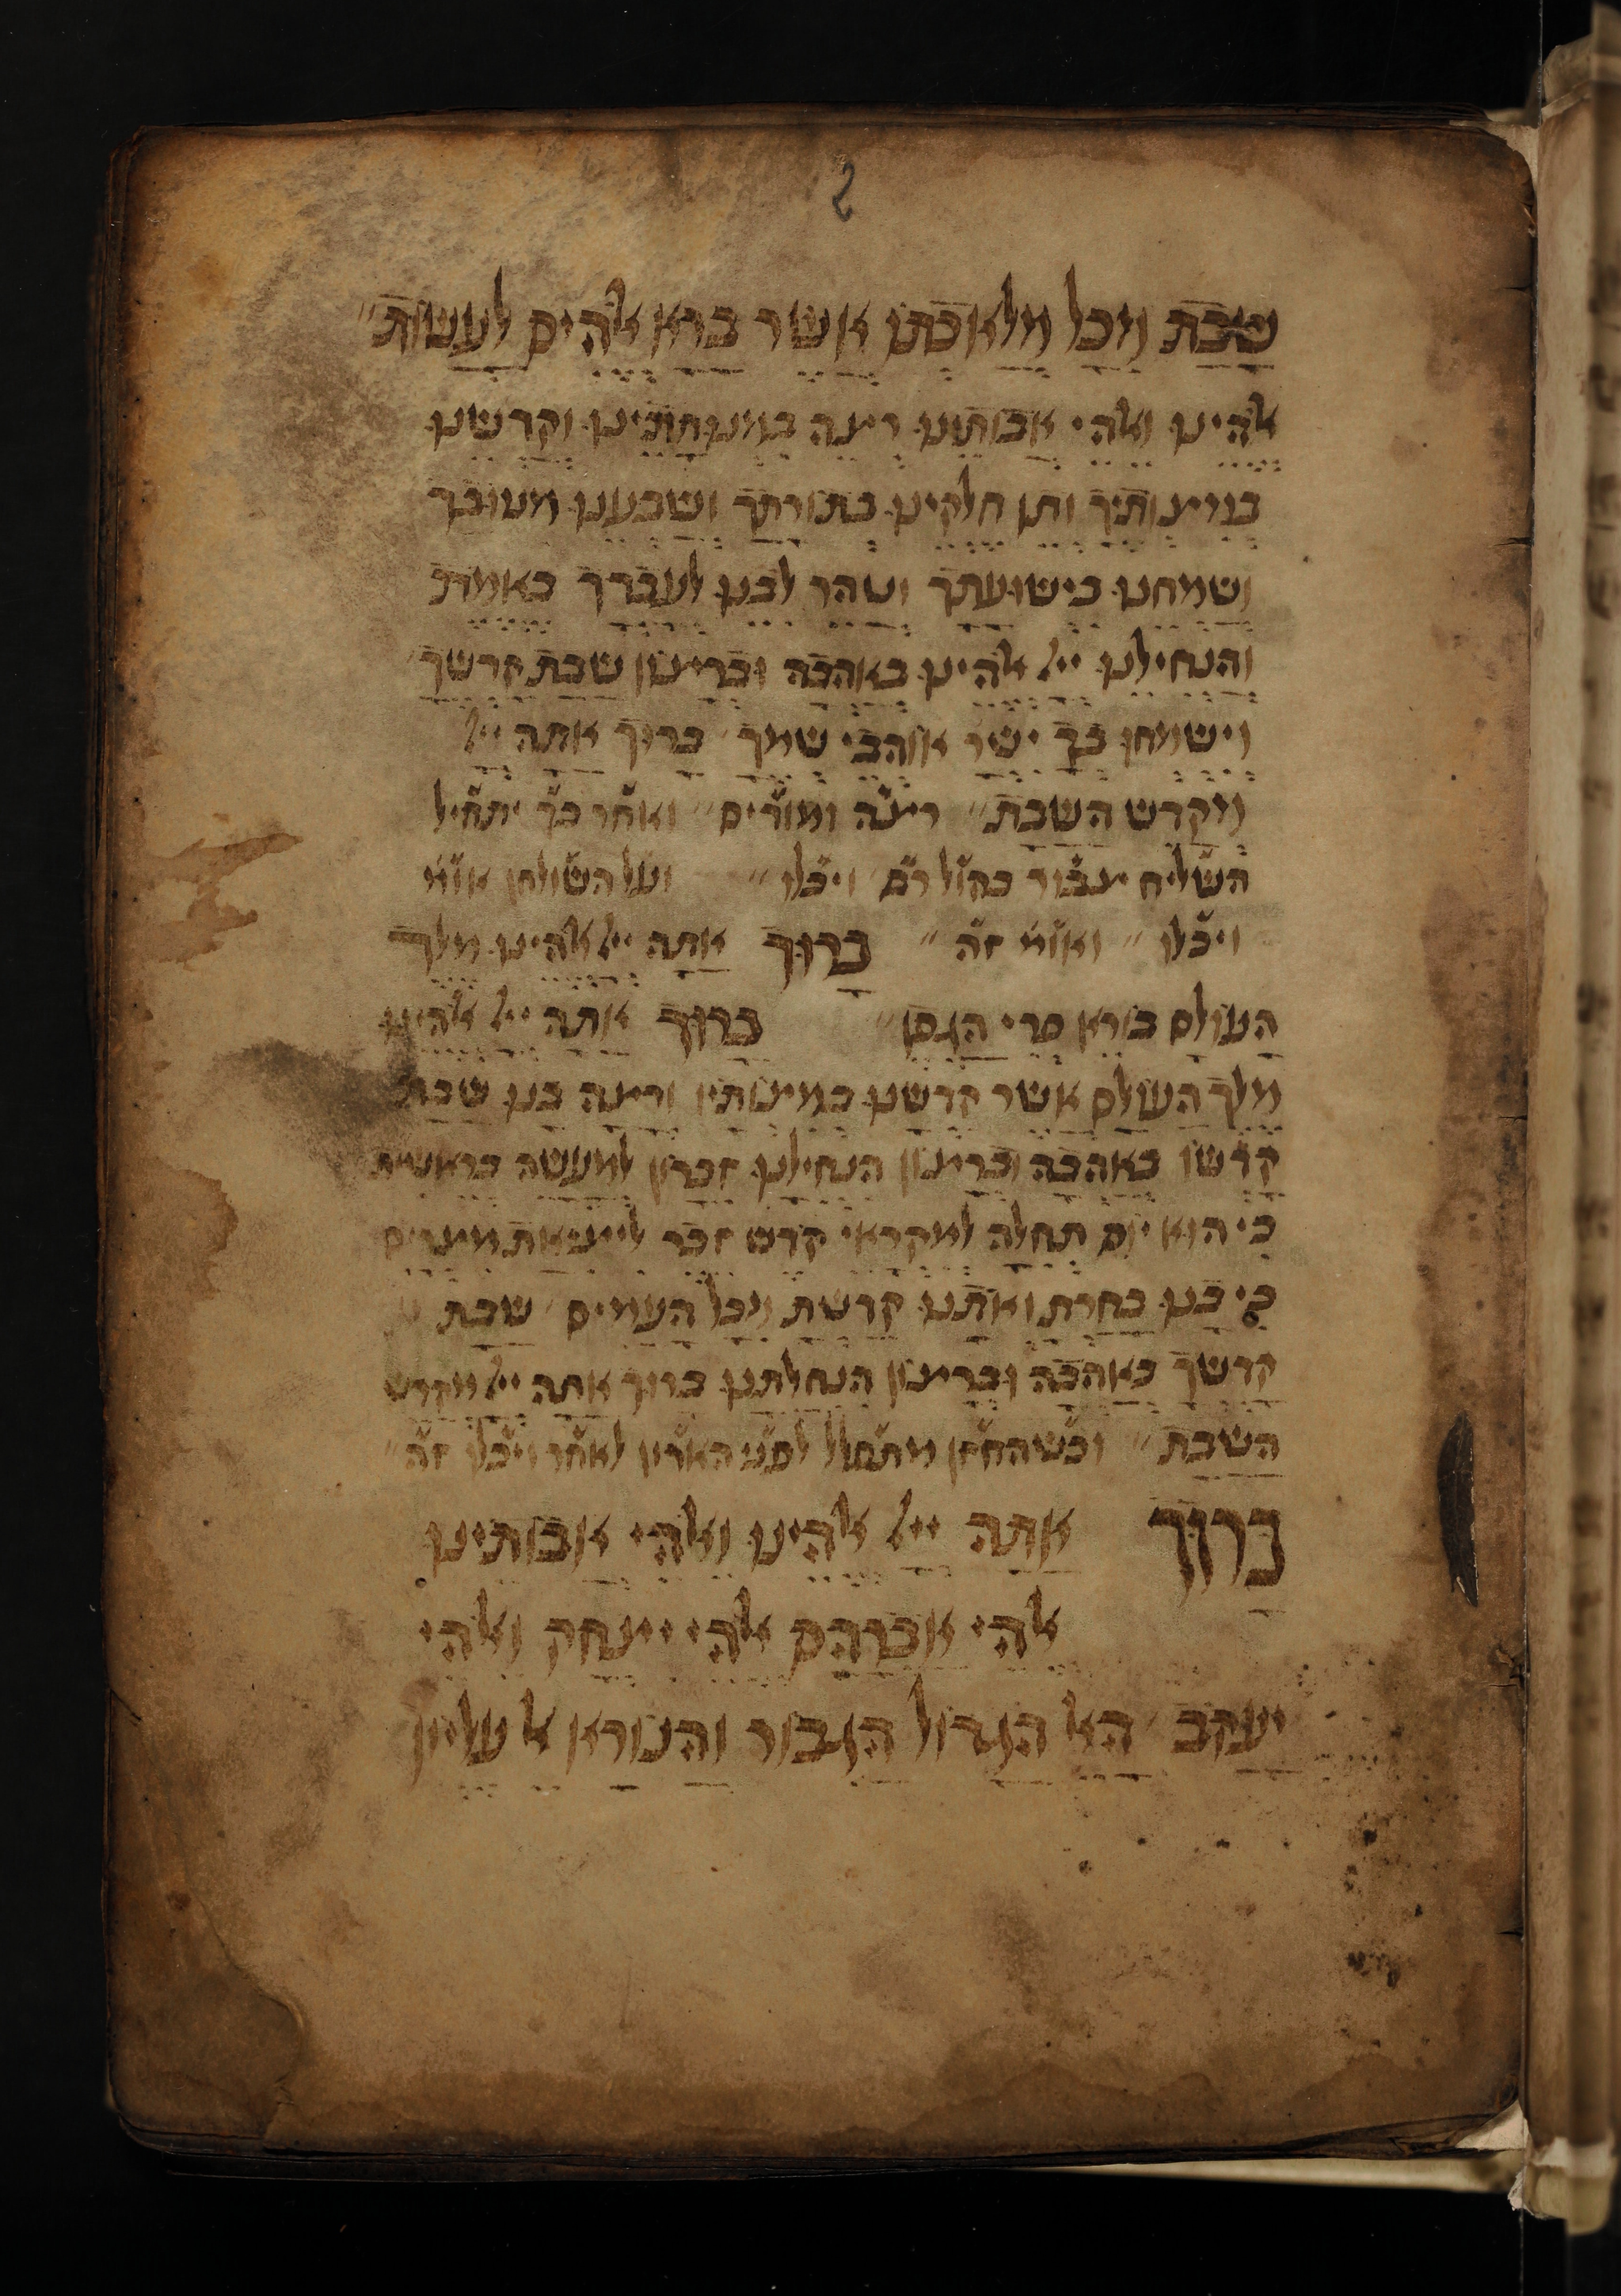 שבת מכל מלאכתו אשר ברא אלהים לעשות״
אלהינו ואלהי אבותינו רצה במנוחתינו וקדשנו
במצותיך ותן חלקינו בתורתך ושבענו מטובך
ושמחנו בישועתך וטהר לבנו לעבדך באמת
והנחילנו ייל אלהינו באהבה וברצון שבת קדשך
וישמחו בך ישר אוהבי שמך ברוך אתה ייל
מקדש השבת״ רצה ומודים״ ואחר כך יתחיל
השליח צבור בקול רם ויכלו״ ועל השולחן אומ
ויכלו״ ואומ זה״ ברוך אתה ייל אלהינו מלך
העולם בורא פרי הגפן״ ברוך אתה ייל אלהינו
מלך העולם אשר קדשנו במצותיו ורצה בנו שבת
קדשו באהבה וברצון הנחילנו זכרון למעשה בראשית
כי הוא יום תחלה למקראי קדש זכר ליציאת מצרים
כי בנו בחרת ואותנו קדשת מכל העמים שבת
קדשך באהבה וברצון הנחלתנו ברוך אתה ייל מקדש
השבת״ וכשהחזן מתפלל לפני הארון לאחר ויכלו זה״
ברוך אתה ייל אלהינו ואלהי אבותינו
אלהי אברהם אלהי יצחק ואלהי
יעקב האל הגדול הגבור והנורא אל עליון